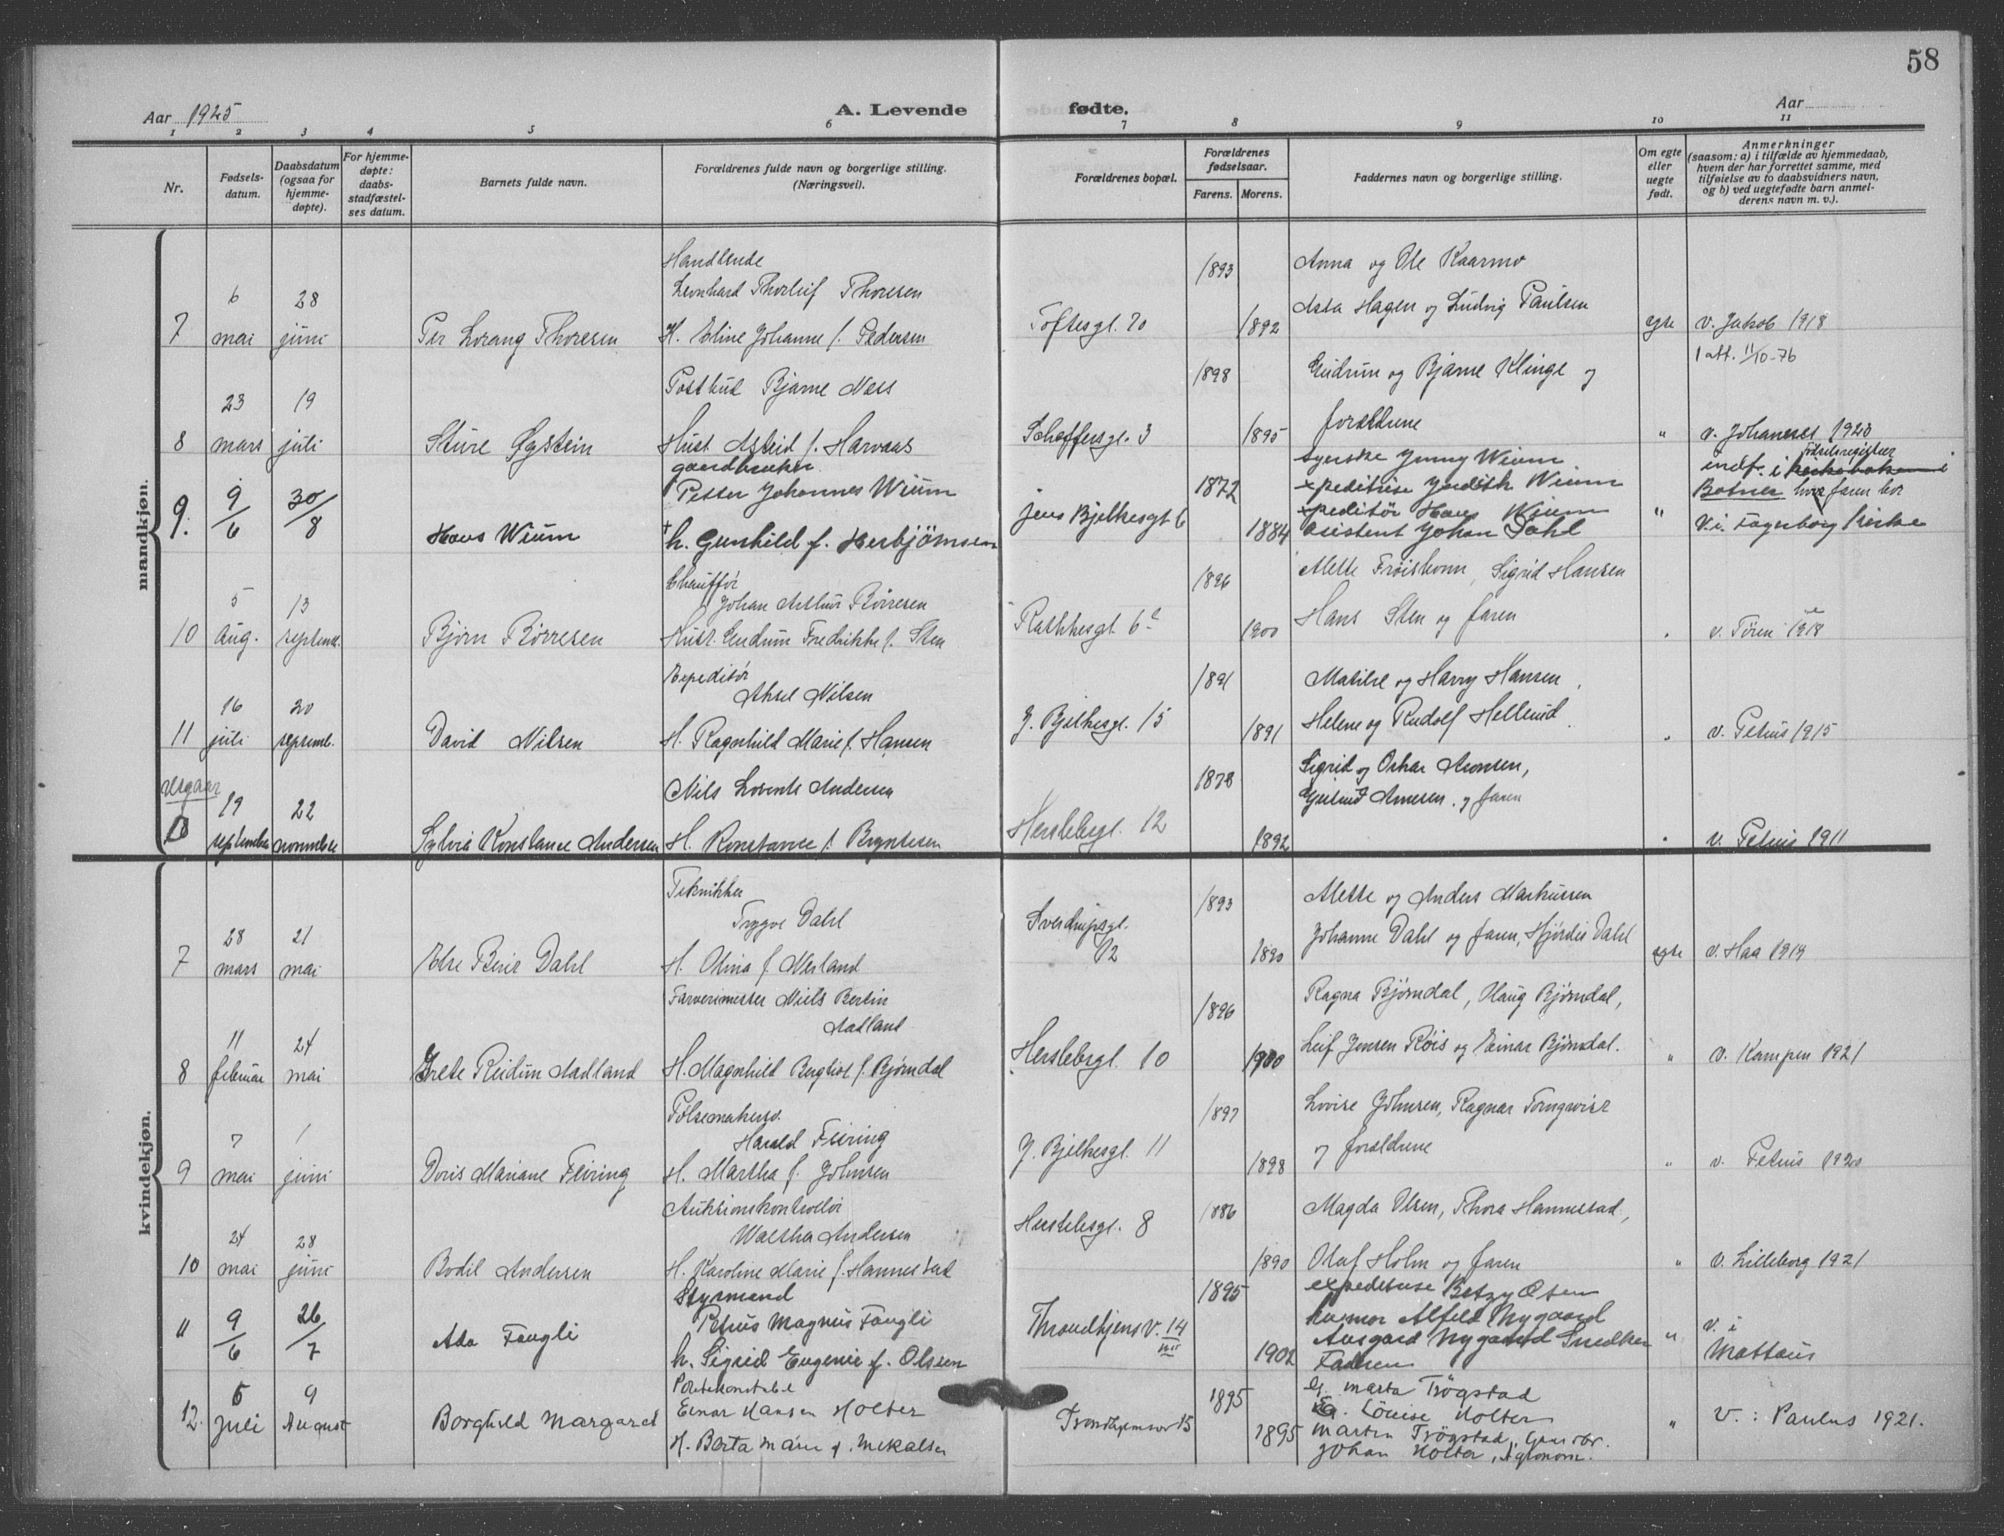 58
Aar 1925
A. Levende fødte.
Aar
1 2 3 4 5 6 7 8 9 10 11
Nr.
Fødsels-
datum.
Daabsdatum
(ogsaa for
hjemme-
døpte).
For hjemme-
døpte:
daabs-
stadfæstel-
ses datum.
Barnets fulde navn.
Forældrenes fulde navn og borgerlige stilling.
(Næringsvei).
Forældrenes bopæl.
Forældrenes
fødselsaar.
Farens. Morens.
Faddernes navn og borgerlige stilling.
Om egte
eller
uegte
født.
Anmerkninger
(saasom: a) i tilfælde av hjemmedaab,
hvem der har forrettet samme, med
tilføielse av to daabsvidners navn,
og b) ved uegtefødte barn anmel-
derens navn m. v.).
mandkjøn.
7
6
mai
28
juni
Per Lorang Thoresen
Handlende
Leonhard Thorleif Thoresen
H. Eline Johanne f. Pedersen
Toftesgt. 70
1893
1892
Anna og Ole Kaarmo
Asta Hagen og Ludvig Paulsen
egte
v. Jakob 1918
1 att. 11/10-76
8
23
mars
19
juli
Sture Øystein
Postbud Bjarne Næss
Hust. Astrid f. Harvaas
Schøffersgt. 3
1898
1895
Gudrun og Bjarne Klinge og
forældrene
"
v. Johannes 1923
9.
9/6
30/8
Hans Wium
gaardbruker
Petter Johannes Wium
h. Gunhild f. Herbjørnsen
Jens Bjelkesgt 6
1872
1884
syerske Jenny Wium
expeditrise Judith Wium
expeditør Hans Wium
assistent Johan Dahl
"
indf. i fødselsregister i
Botner hvor faren bor
v. i Fagerborg kirke
10
5
aug.
13
septemb.
Bjørn Børresen
Chauffør
Johan Arthur Børresen
Hust. Gudrun Fredrikke f. Sten
Rathkesgt. 6
1896
1900
Alette Frøisholm, Sigrid Hansen
Hans Sten og faren
"
11
16
juli
20
septemb.
David Nilsen
Expeditør
Aksel Nilsen
H. Ragnhild Marie f. Hansen
J. Bjelkesgt. 15
1891
1891
Matilde og Harry Hansen,
Helene og Rudolf Hellund
"
v. Petrus 1915
utgaar
19
september
22
november
Sylvia Konstance Andersen
Nils Lorentz Andersen
H. Konstance f. Bryntesen
Herslebsgt. 12
1878
1892
Sigrid og Oskar Aronsen,
Gjertrud Arnesen og faren
"
v. Petrus 1911
kvindekjøn.
7
28
mars
21
mai
Else Berit Dahl
Tekniker
Trygve Dahl
H. Olina f. Nerland
Sverdrupsgt.
12
1893
1890
Alette og Anders Markussen
Johanne Dahl og faren, Hjørdis Dahl
egte
v. Haa 1919
8
11
februar
24
mai
Grete Reidun Aadland
Farverimester Niels Bertin
Aadland
H. Magnhild Bergliot f. Bjørndal
Herslebsgt. 10
1896
1900
Ragna Bjørndal, Haug Bjørndal,
Leif Jensen Røis og Einar Bjørndal.
"
v. Kampen 1921
9
7
mai
1
juni
Doris Mariane Feiring
Pølsemakersv.
Harald Feiring
H. Martha f. Johnsen
J. Bjelkesgt. 11
1897
1898
Lovise Johnsen, Ragnar Tornqvist
og forældrene
"
v. Petrus 1920
10
24
mai
28
juni
Bodil Andersen
Auktionskontrollør
Walther Andersen
H. Karoline Marie f. Hannestad
Herslebsgt. 8
1886
1890
Magda Olsen, Thora Hannestad,
Olaf Holm og faren
"
v. Lilleborg 1921
11
9/6
26/7
Ada Fougli
Styrmand
Petrus Magnus Fougli
h. Sigrid Eugenie f. Olssen
Throndhjemsv. 14
1895
1902
expeditrise Betzy Olsen
Alfild Nygaard
Aasgard Nygaard Snedker
Faderen
"
v. i
Mattæus
12.
5
Juli
9
August
Borghild Margaret
Politikonstabel
Einar Hansen Holter
H. Berta Marie f. Mikalsen
Trondhjemsv 15
1895
1895
G. Marta Trøgstad
G. Louise Holter
Martin Trøgstad, Gaardbr.
Johan Holter, Agronom.
"
v.: Paulus 1921.